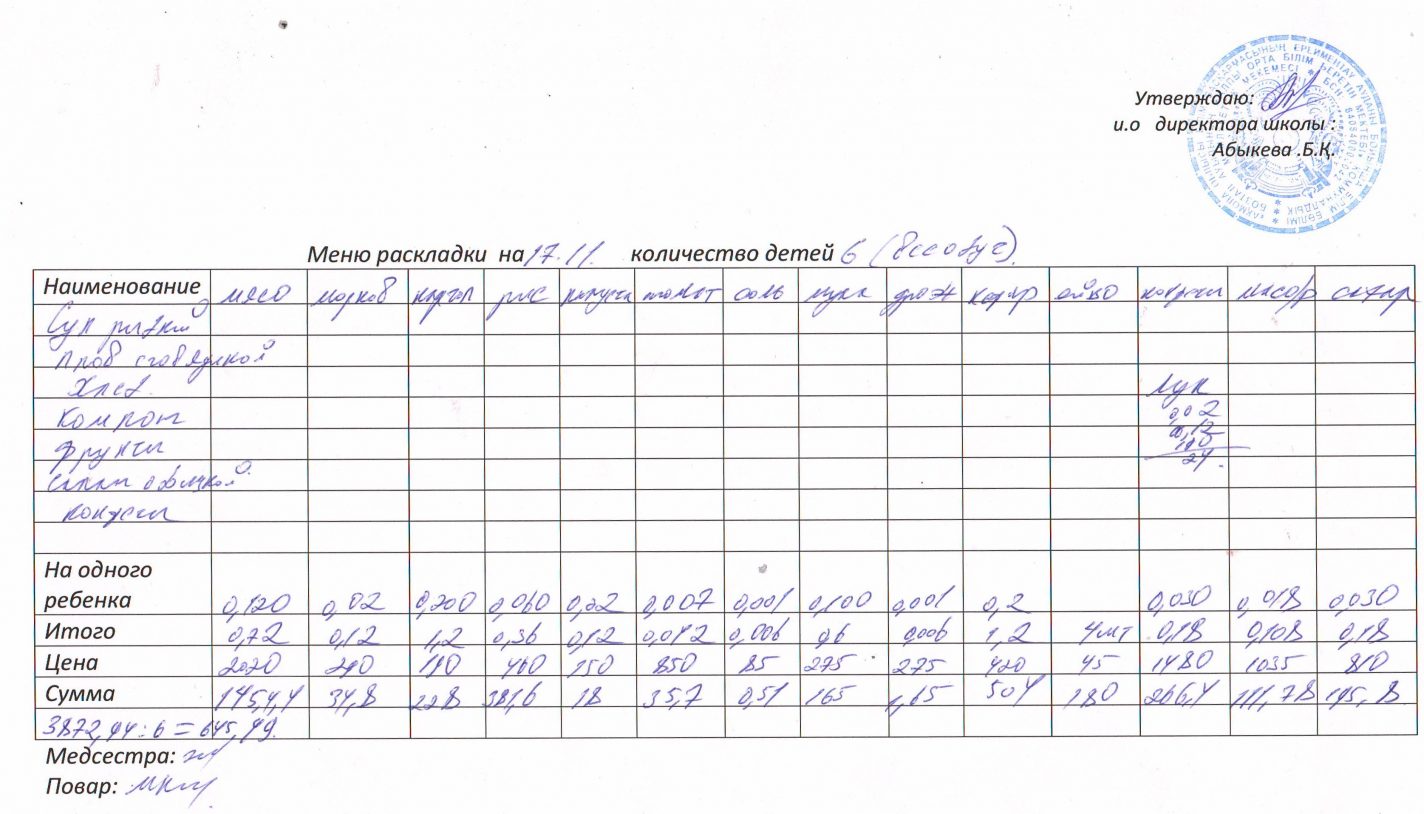 Утверждаю:
и.о директора школы :
Абыкева .Б.Қ.
Меню раскладки на 17.11. количество детей 6 (Всеобуч)
Наименование мясо морков картоп рис капуста томат соль мука дрож кефир яйцо конфеты масор сахар
Суп
Плов с говядиной
Хлеб. Лук
Компот 0,02
Фрукты 0,12
Салат 24.
На одного
ребенка 0,120 0,02 0,200 0,060 0,02 0,007 0,001 0,100 0,001 0,2 0,030 0,018 0,030
Итого 0,72 0,12 1,2 0,36 0,12 0,042 0,006 0,6 0,006 1,2 4шт 0,18 0,108 0,18
Цена 2020 290 190 150 850 85 275 275 420 45 1480 1035 810
Сумма 1454,4 34,8 228 18 35,7 0,51 165 1,65 504 180 266,4 111,78 145,8
3872,94 : 6 = 645,49.
Медсестра:
Повар: